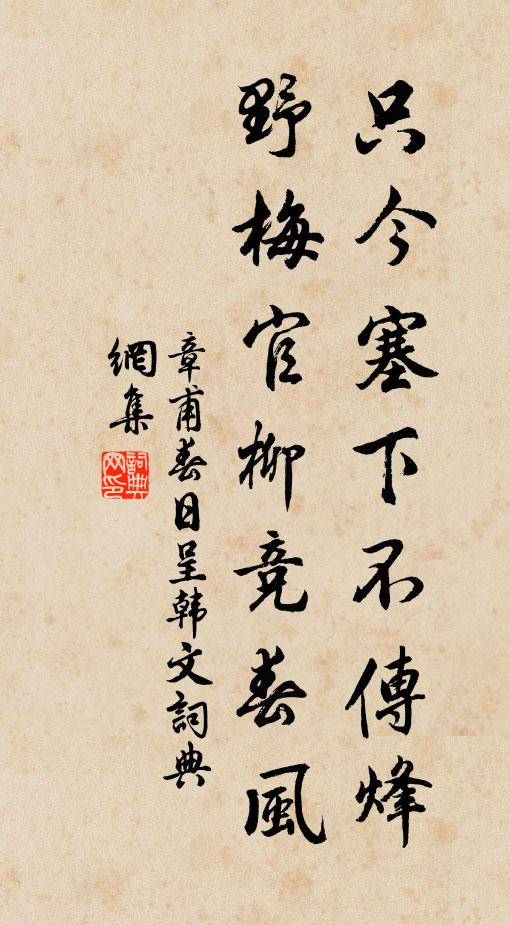 只今塞下不傳烽
野梅官柳竞春風
章甫春日呈韩文詞典
網集
詞典网印